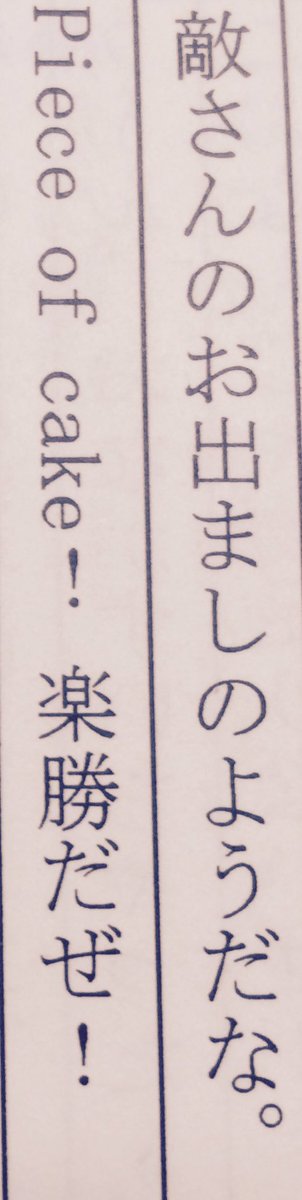 敵さんのお出ましのようだな。
Piece of cake! 楽勝だぜ！